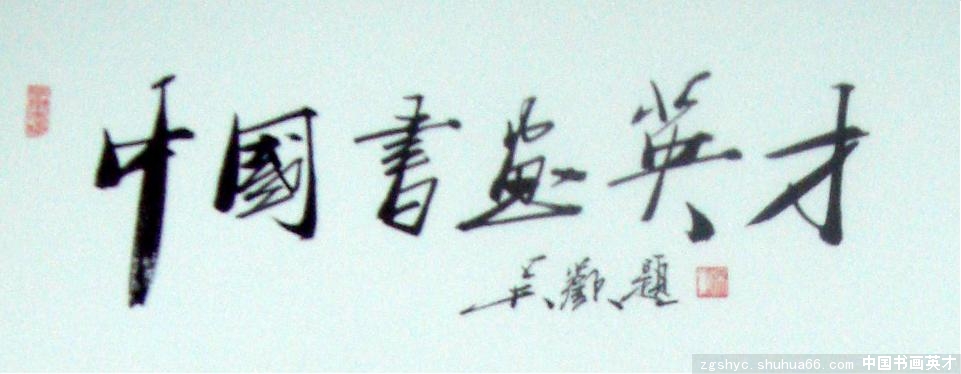 中國書畫英才
吴歡題
zgshyc.shuhua66.com 中国书画英才